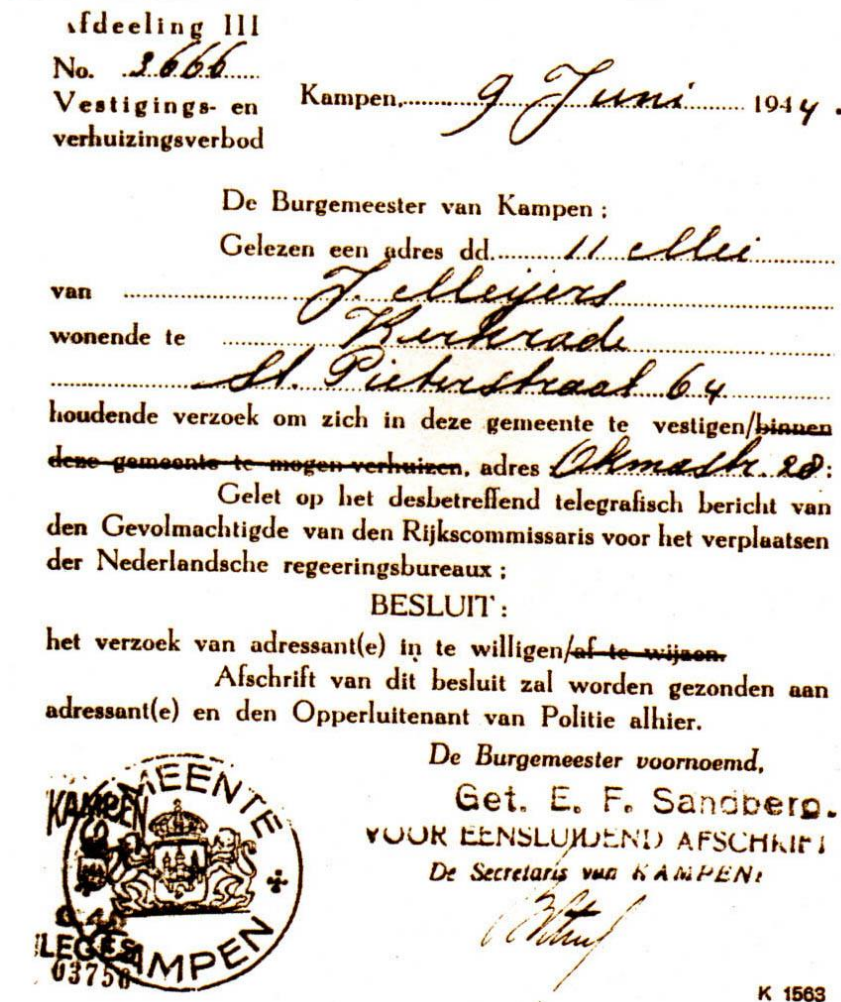 Afdeeling III
No. 3666
Vestigings- en
verhuizingsverbod
Kampen, 9 Juni 1944.
De Burgemeester van Kampen;
Gelezen een adres dd. 11 Mei
van J. Meijers
wonende te Kerkrade
St. Pieterstraat 64
houdende verzoek om zich in deze gemeente te vestigen/binnen
deze gemeente te mogen verhuizen, adres Okmastr. 28:
Gelet op het desbetreffend telegrafisch bericht van
den Gevolmachtigde van den Rijkscommissaris voor het verplaatsen
der Nederlandsche regeeringsbureaux;
BESLUIT:
het verzoek van adressant(e) in te willigen/af te wijzen.
Afschrift van dit besluit zal worden gezonden aan
adressant(e) en den Opperluitenant van Politie alhier.
De Burgemeester voornoemd,
Get. E. F. Sandberg.
VOOR EENSLUIDEND AFSCHRIFT
De Secretaris van KAMPEN:
GEMEENTE
KAMPEN
KAMPEN
LEGES
03756
K 1563